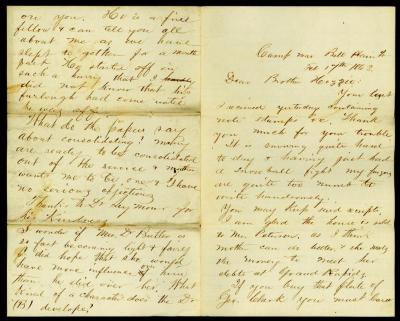 Camp near Bell Plain Va
Feb 17th 1863.
Dear Brother Hezzie:
Your letter
I received yesterday containing
note stamps &c. Thank
you much for your trouble
It is snowing quite hard
to day & having just had
a snow ball fight my fingers
are quite too numb to
write handsomely.
You may keep said receipt.
I am glad the home is sold
to Mr Peterson, as I think
mother can do better, & she wants
the money to meet her
debts at Grand Rapids.
If you buy that flute of
Geo. Clark you must have
on you. He is a fine
fellow & can tell you all
about me as we have
slept to gether for a month
past. He started off in
such a hurry that I
did not know that his
furlough had come until
he was off.
What do the papers say
about consolidating? many
are ready to be consolidated
out of the service & mother
wants me to be one & I have
no serious objections
Thank Dr Seymour for
his kindness
I wonder if Mrs Dr Butler is
so fast becoming right & fairly
I did hope that she would
have more influence on him
than he did over her. What
kind of a character does the Dr
(B) develope?